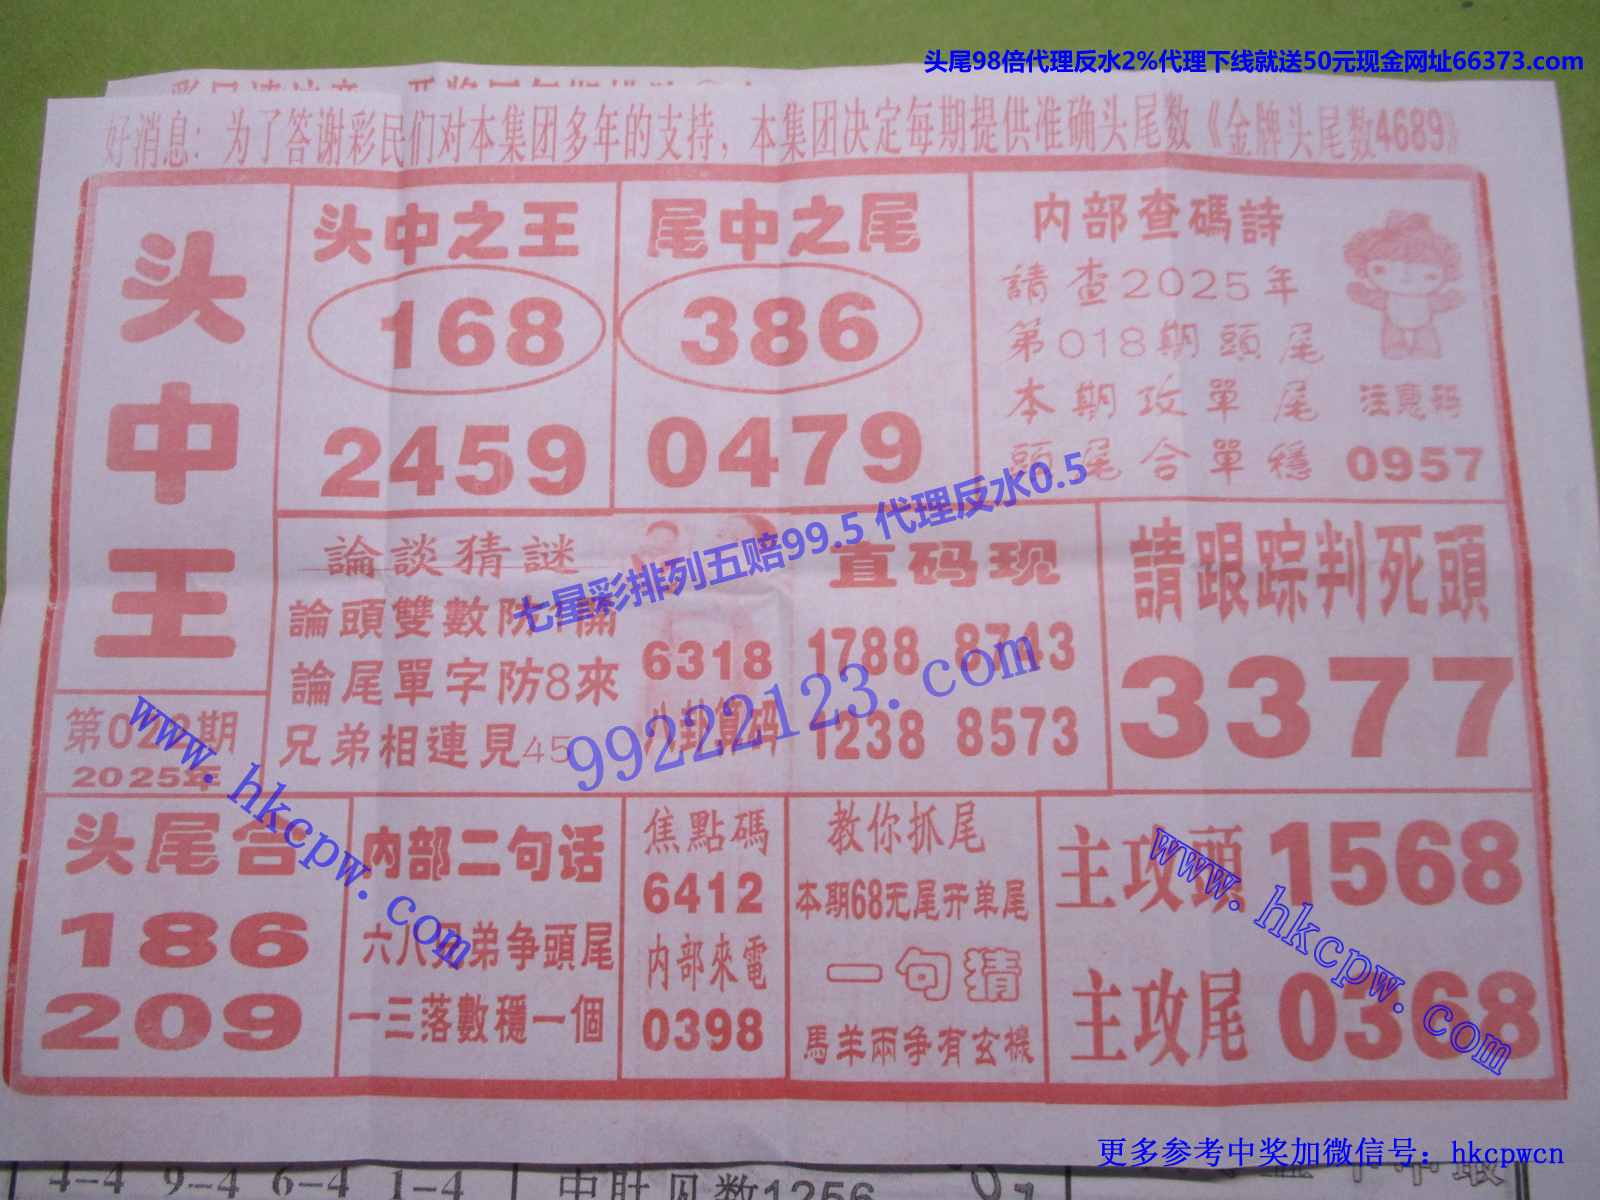 头尾98倍代理反水2%代理下线就送50元现金网址66373.com
好消息：为了答谢彩民们对本集团多年的支持，本集团决定每期提供准确头尾数《金牌头尾数4689》
头中王
第022期
2025年
头中之王
168
2459
尾中之尾
386
0479
内部查碼詩
請查2025年
第018期頭尾
本期攻單尾
頭尾合單穩
注意码
0957
論談猜謎
論頭雙數防1開
論尾單字防8來
兄弟相連見45
6318
八卦算码
直码现
1788 8743
1238 8573
請跟踪判死頭
3377
七星彩排列五赔99.5 代理反水0.5
99222123.com
www.hkcpw.com
头尾合
186
209
内部二句话
六八兄弟争頭尾
一三落數穩一個
焦點碼
6412
内部來電
0398
教你抓尾
本期68无尾开单尾
一句猜
馬羊兩争有玄機
主攻頭 1568
主攻尾 0368
www.hkcpw.com
更多参考中奖加微信号：hkcpwcn
4-4 9-4 6-4 1-4
中肚见数1256